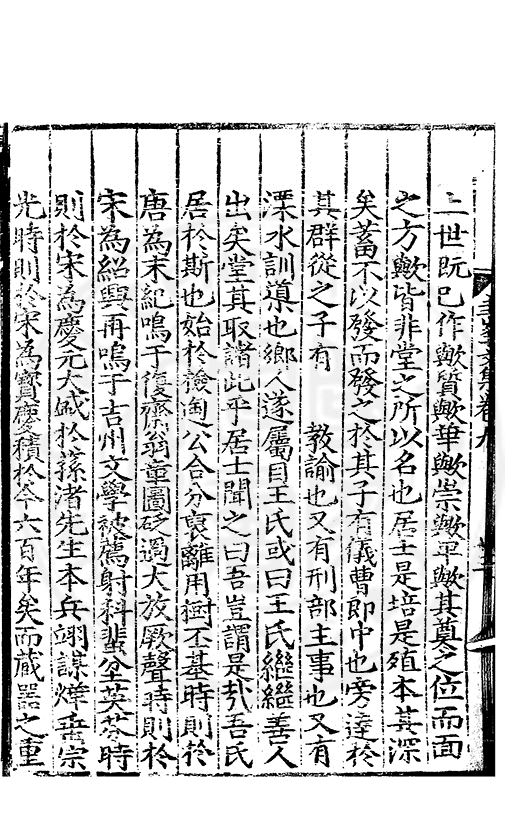 二世既已作歟質歟華歟崇歟卑歟其奠之位而面
之方歟皆非堂之所以名也居士是培是殖本其深
矣蓄不以發而發之於其子有儀曹郎中也旁達於
其群從之子有　教諭也又有刑部主事也又有
溧水訓導也鄉人遂屬目王氏或曰王氏繼繼善人
出矣堂其取諸此乎居士聞之曰吾豈謂是哉吾氏
居於斯也始於淘公合分裒離用樹丕基時則於
唐為末紀鳴于復齋翁童圖砭過大放厥聲時則於
宋為紹興再鳴于吉州文學被薦射科蜚英時
則於宋為慶元大於渚先生本兵翊謀煒宗
光時則於宋為寶慶積於今六百年矣而蔵器之重
文集卷九